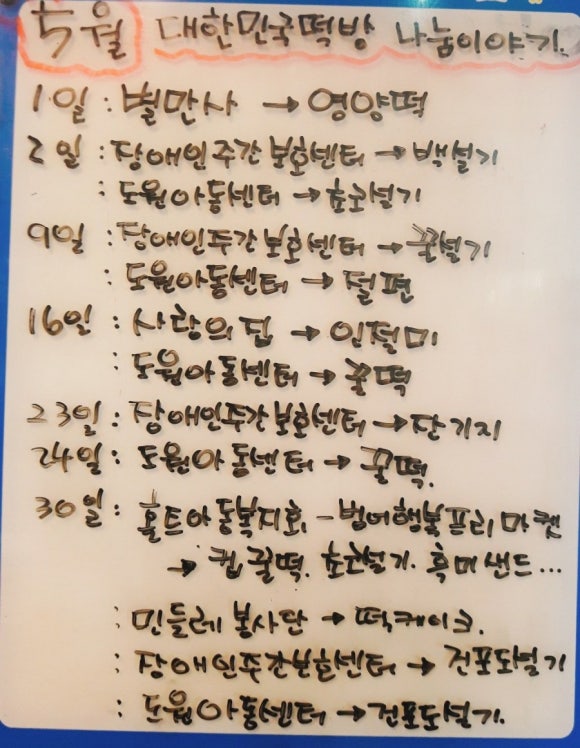 5월 대한민국떡방 나눔이야기.
1일 : 별만사 → 영양떡
2일 : 장애인주간보호센터 → 백설기
: 도원아동센터 → 초코설기
9일 : 장애인주간보호센터 → 꿀설기
: 도원아동센터 → 절편
16일 : 사랑의집 → 인절미
: 도원아동센터 → 꿀떡
23일 : 장애인주간보호센터 → 단기지
24일 : 도원아동센터 → 꿀떡.
30일 : 홀트아동복지회. - 범어행복프리마켓
→ 컵꿀떡. 초코설기. 흑미샌드...
: 민들레봉사단 → 떡케이크.
: 장애인주간보호센터 → 건포도설기
: 도원아동센터 → 건포도설기.